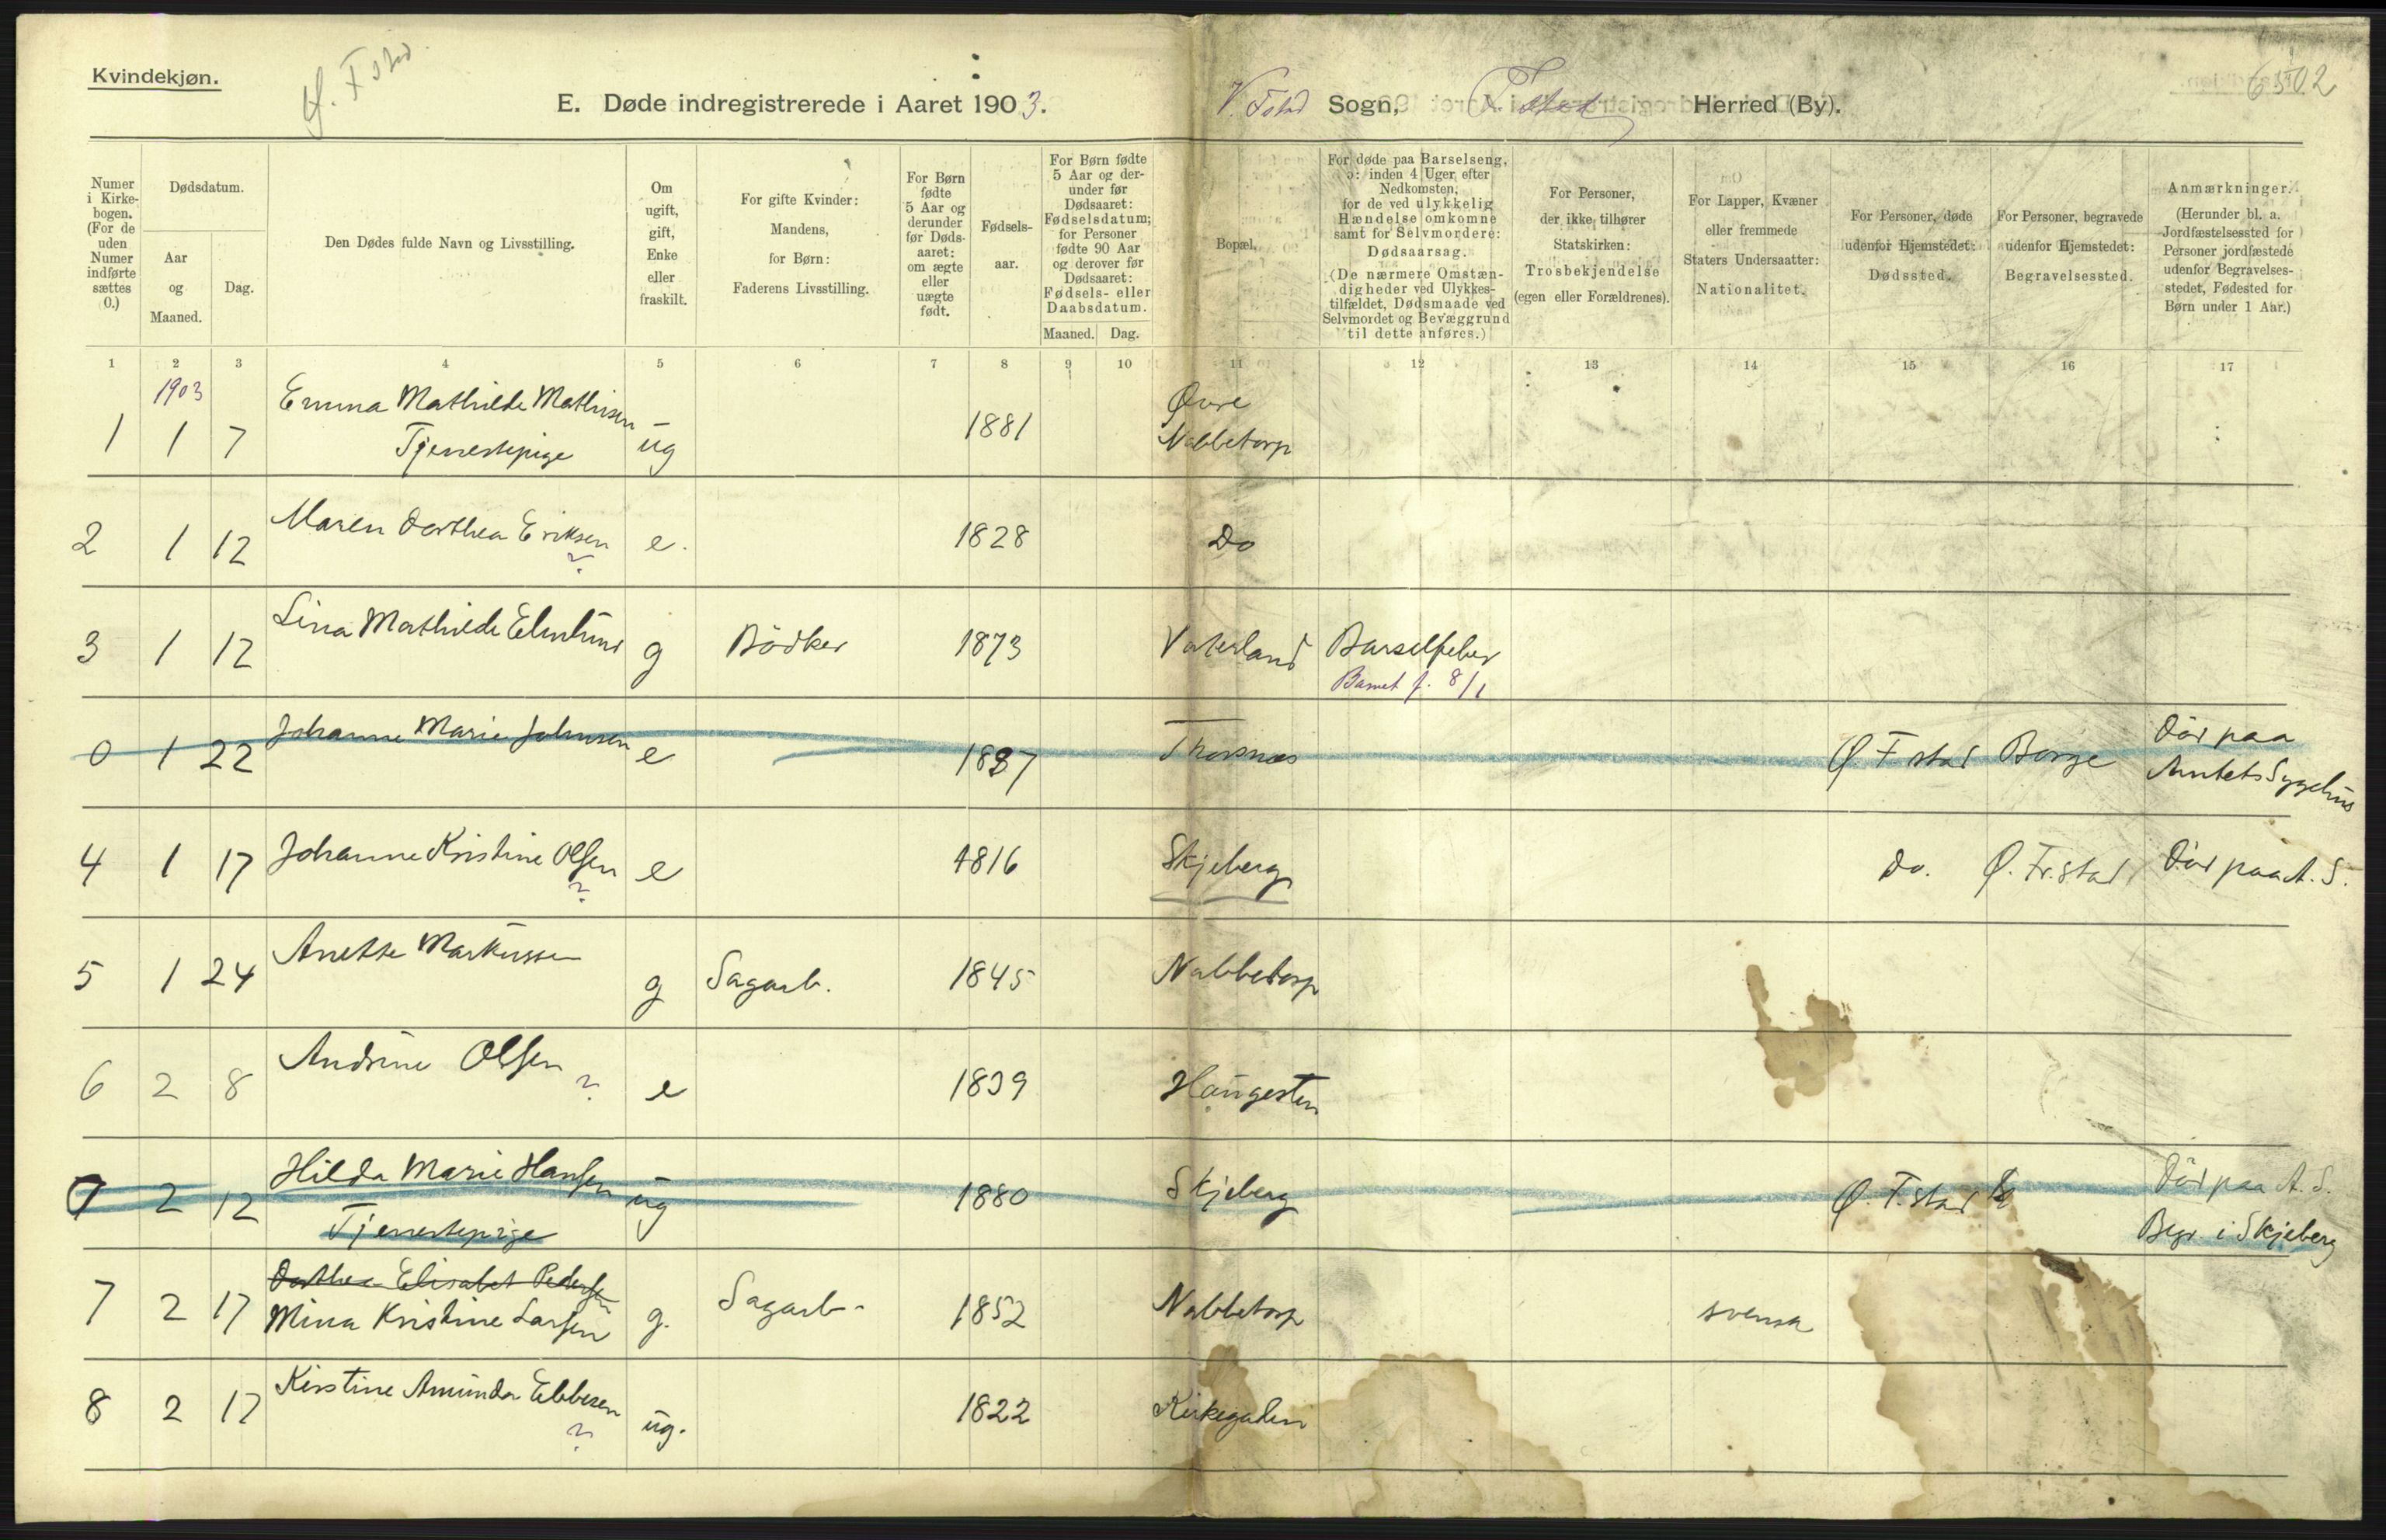 Kvindekjøn.
Ø. Fstad
E. Døde indregistrerede i Aaret 1903.
V. Fstad Sogn, F.stad Herred (By).
6502
Numer i Kirkebogen. (For de uden Numer indførte sættes 0.)
Dødsdatum.
Aar og Maaned.
Dag.
Den Dødes fulde Navn og Livsstilling.
Om ugift, gift, Enke eller fraskilt.
For gifte Kvinder: Mandens, for Børn: Faderens Livsstilling.
For Børn fødte 5 Aar og derunder før Dødsaaret: om ægte eller uægte født.
Fødselsaar.
For Børn fødte 5 Aar og derunder før Dødsaaret: Fødselsdatum; for Personer fødte 90 Aar og derover før Dødsaaret: Fødsels- eller Daabsdatum.
Maaned. Dag.
Bopæl.
For døde paa Barselseng, ɔ: inden 4 Uger efter Nedkomsten, for de ved ulykkelig Hændelse omkomne samt for Selvmordere: Dødsaarsag. (De nærmere Omstændigheder ved Ulykkestilfældet, Dødsmaade ved Selvmordet og Bevæggrund til dette anføres.)
For Personer, der ikke tilhører Statskirken: Trosbekjendelse (egen eller Forældrenes).
For Lapper, Kvæner eller fremmede Staters Undersaatter: Nationalitet.
For Personer, døde udenfor Hjemstedet: Dødssted.
For Personer, begravede udenfor Hjemstedet: Begravelsessted.
Anmærkninger. (Herunder bl. a. Jordfæstelsessted for Personer jordfæstede udenfor Begravelsesstedet, Fødested for Børn under 1 Aar.)
1 2 3 4 5 6 7 8 9 10 11 12 13 14 15 16 17
1903
1 1 7 Emma Mathilde Mathisen Tjenestepige ug 1881 Øvre Nabbetorp
2 1 12 Maren Dorthea Eriksen ? e. 1828 Do
3 1 12 Lina Mathilde Elmlund g Bødker 1873 Vaterland Barselfeber
Barnet f. 8/1
0 1 22 Johanne Marie Johnsen e 1837 Thorsnæs Ø. Fstad Borge Død paa Amtets Sygehus
4 1 17 Johanne Kristine Olsen ? e 1816 Skjeberg Do. Ø. Fr.stad Død paa A. S.
5 1 24 Anette Markussen g Sagarb. 1845 Nabbetorp
6 2 8 Andrine Olsen ? e 1839 Haugesten
7 2 12 Hilda Marie Hansen Tjenestepige ug 1880 Skjeberg Ø. F.stad Død paa A. S.
Begr. i Skjeberg
Dorthea Elisabet Pedersen
7 2 17 Mina Kristine Larsen g. Sagarb. 1852 Nabbetorp svensk
8 2 17 Kirstine Amunda Ebbesen ? ug. 1822 Kirkegaden